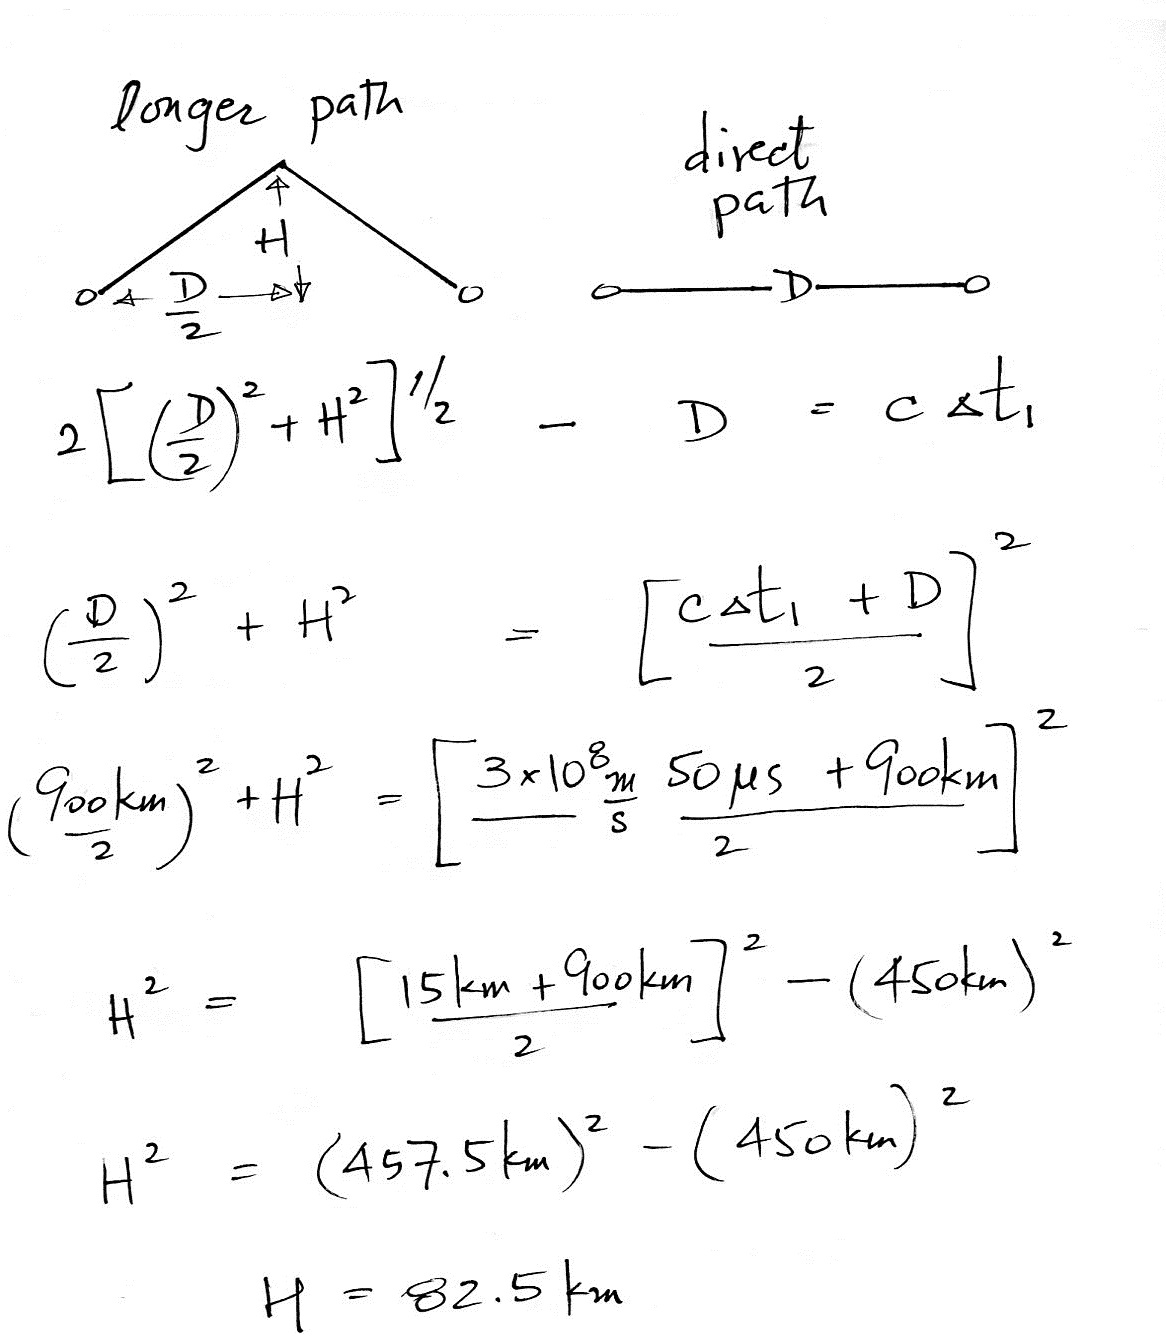 longer path
direct
path
H
D/2
D
2[(D/2)² + H²]^1/2 - D = c Δt₁
(D/2)² + H² = [(cΔt₁ + D)/2]²
(900km/2)² + H² = [(3×10⁸ m/s 50 μs + 900km)/2]²
H² = [(15km + 900km)/2]² - (450km)²
H² = (457.5km)² - (450km)²
H = 82.5 km